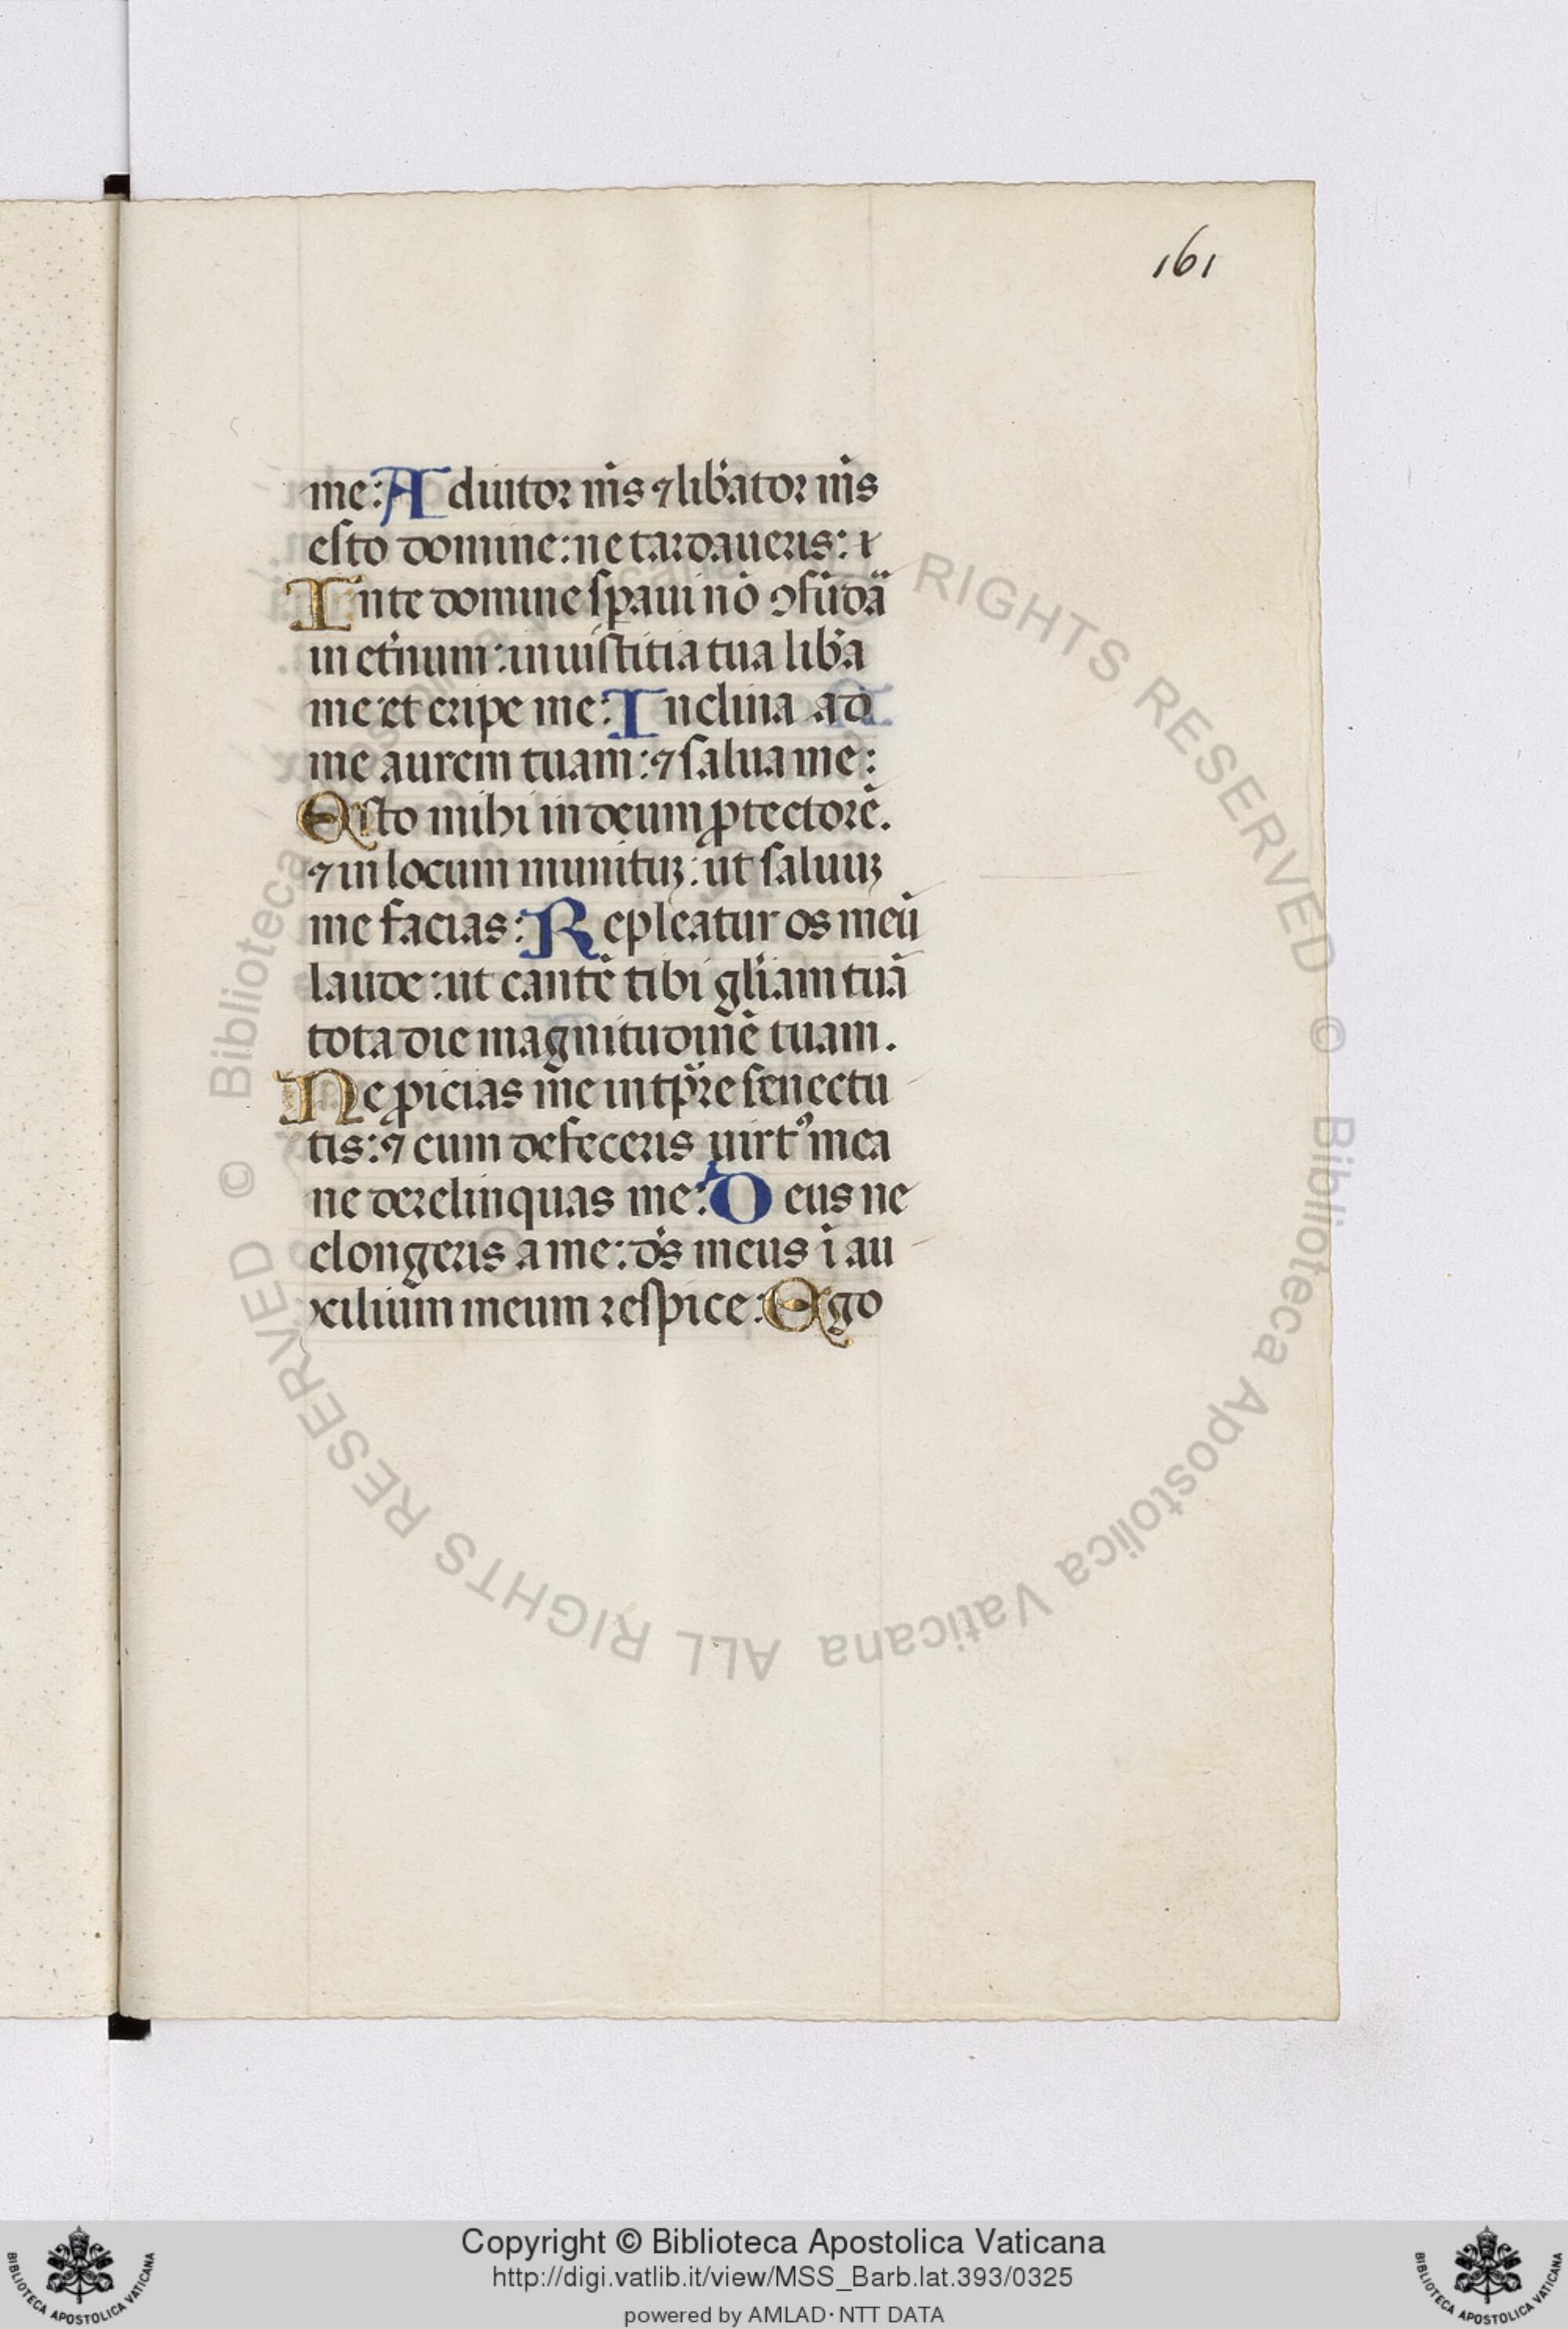 161
me: Adiutor m̄s ⁊ lib̄ator m̄s
esto domine: ne tardaueris: ⁊
In te domine sꝑaui nō ↄfūdā
in et̄num: in iustitia tua lib̄a
me et eripe me: Inclina ad
me aurem tuam: ⁊ salua me:
Esto mihi in deum ꝓtectorē.
⁊ in locum munituꝫ: ut saluuꝫ
me facias: Repleatur os meū
laude: ut cantē tibi gl̄iam tuā
tota die magnitudinē tuam.
Ne ꝓicias me in tp̄re senectu
tis: ⁊ cum defeceris uirtꝰ mea
ne derelinquas me: Deus ne
elongeris a me: ds̄ meus ī au
xilium meum respice: Ego
© Biblioteca Apostolica Vaticana ALL RIGHTS RESERVED
© Biblioteca Apostolica Vaticana ALL RIGHTS RESERVED
Copyright © Biblioteca Apostolica Vaticana
http://digi.vatlib.it/view/MSS_Barb.lat.393/0325
powered by AMLAD·NTT DATA
BIBLIOTECA APOSTOLICA VATICANA
BIBLIOTECA APOSTOLICA VATICANA